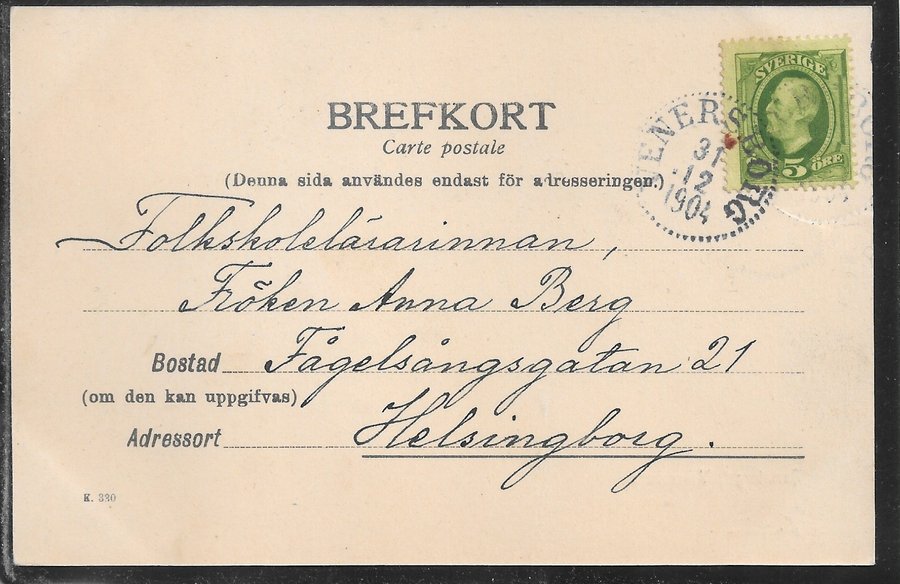 BREFKORT
Carte postale
(Denna sida användes endast för adresseringen.)
SVERIGE
5 ÖRE
VENERSBORG
31
12
1904
Folkskolelärarinnan,
Fröken Anna Berg
Bostad Fågelsångsgatan 21
(om den kan uppgifvas)
Adressort Helsingborg.
K. 330